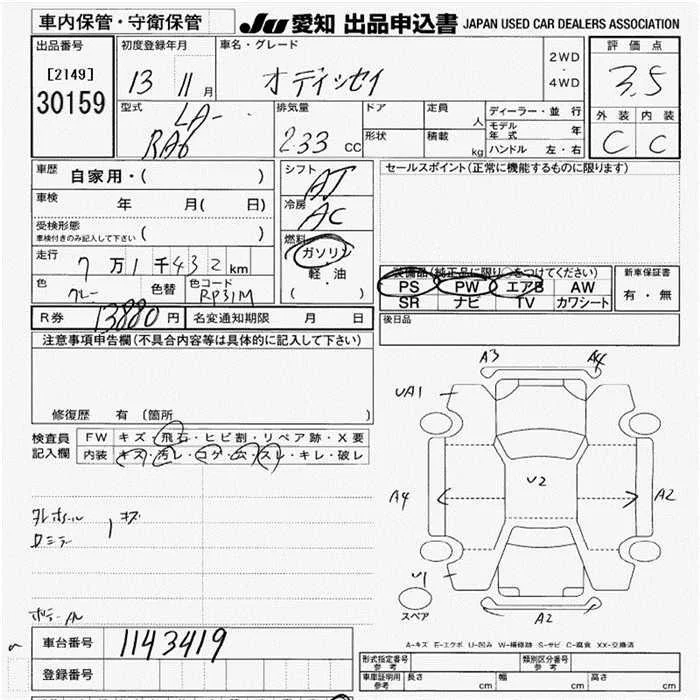 車内保管・守衛保管
JU 愛知 出品申込書 JAPAN USED CAR DEALERS ASSOCIATION
出品番号
[2149]
30159
初度登録年月
13 11 月
車名・グレード
オデッセイ
2WD
・
4WD
評価点
3.5
外装 内装
C C
型式
LA-
RA6
排気量
233 cc
ドア
定員
人
形状
積載
kg
ディーラー・並行
モデル年式 年
ハンドル 左・右
車歴
自家用・( )
車検
年 月( 日)
受検形態
車検付きのみ記入して下さい ( )
走行
7万1千432km
色
グレー
色替
色コード
RP31M
シフト
AT
冷房
AC
燃料
ガソリン
・
軽・油
( )
セールスポイント(正常に機能するものに限ります)
装備品(純正品に限り○をつけてください)
PS PW エアB AW
SR ナビ TV カワシート
新車保証書
有・無
後日品
R券 13880円 名変通知期限 月 日
注意事項申告欄(不具合内容等は具体的に記入して下さい)
修復歴 有 (箇所 )
検査員
記入欄
FW キズ・飛石・ヒビ割・リペア跡・X要
内装 キズ・汚レ・コゲ・穴・スレ・キレ・破レ
キズ
A3 A4
UA1
U2
A4 A2
U1
スペア
A2
A-キズ E-エクボ U-凹み W-補修跡 S-サビ C-腐食 XX-交換済
車台番号 1143419
登録番号
形式指定番号
参考
類別区分番号
参考
車庫証明用
参考
長さ cm 幅 cm 高さ cm